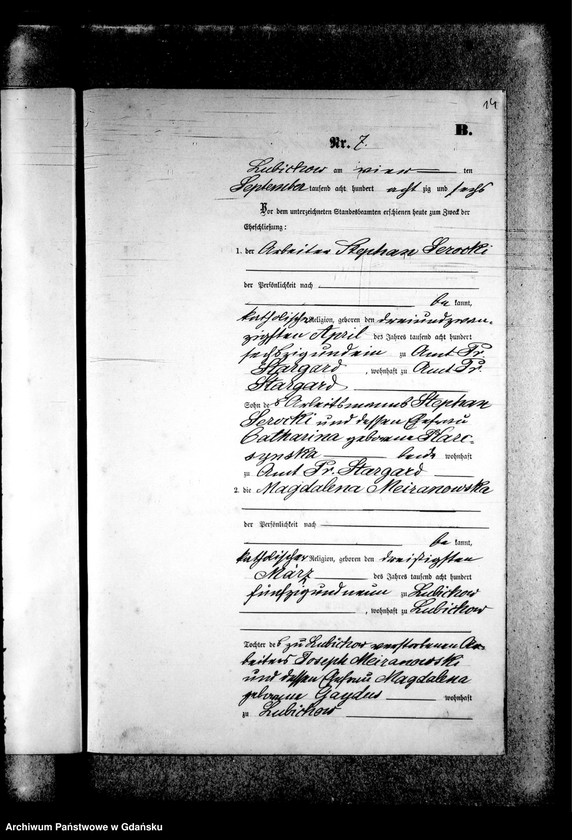 14
B.
Nr. 7.
Lubichow am vier ten
September tausend acht hundert acht zig und sechs
Vor dem unterzeichneten Standesbeamten erschienen heute zum Zweck der
Eheschließung:
1. der Arbeiter Stephan Serocki
der Persönlichkeit nach
be kannt,
katholischer Religion, geboren den dreiundzwan-
zigsten April des Jahres tausend acht hundert
sechszig und ein zu Amt Pr.
Stargard, wohnhaft zu Amt Pr.
Stargard
Sohn des Arbeitsmanns Stephan
Serocki und dessen Ehefrau
Catharina geborene Harc-
synska beide wohnhaft
zu Amt Pr. Stargard
2. die Magdalena Meiranowska
der Persönlichkeit nach
be kannt,
katholischer Religion, geboren den dreißigsten
März des Jahres tausend acht hundert
fünfzig und neun zu Lubichow
, wohnhaft zu Lubichow
Tochter des zu Lubichow verstorbenen Ar-
beiters Joseph Meiranowski
und dessen Ehefrau Magdalena
geborene Gaydus wohnhaft
zu Lubichow
Archiwum Państwowe w Gdańsku